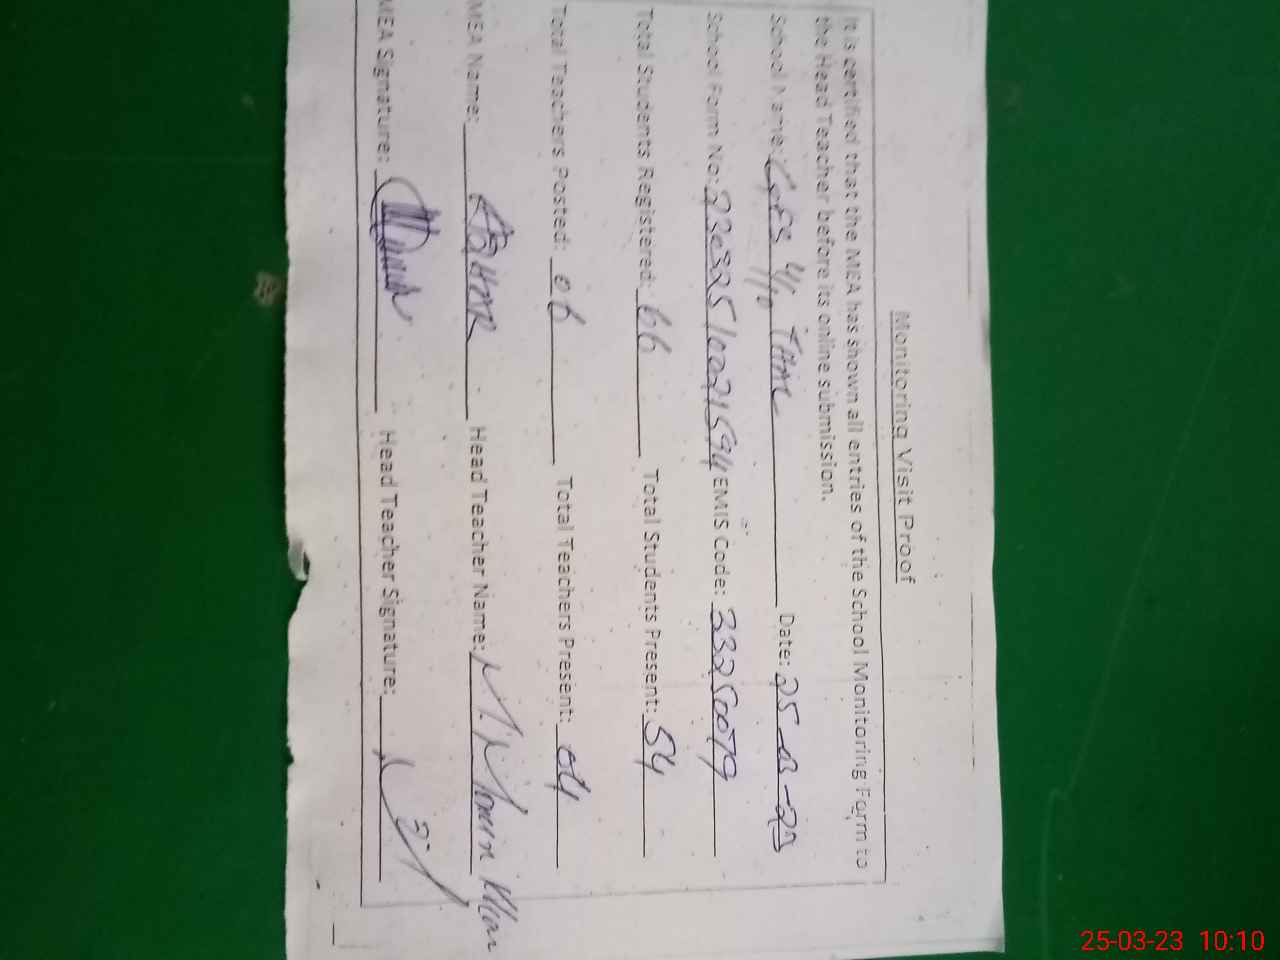 Monitoring Visit Proof
It is certified that the MEA has shown all entries of the School Monitoring Form to
the Head Teacher before its online submission.
School Name: GPS 4/10 Date: 25-3-23
School Form No: 23032510021594 EMIS Code: 33250079
Total Students Registered: 66 Total Students Present: 54
Total Teachers Posted: 06 Total Teachers Present: 04
MEA Name: Head Teacher Name: Khan
MEA Signature: Head Teacher Signature:
25-03-23 10:10